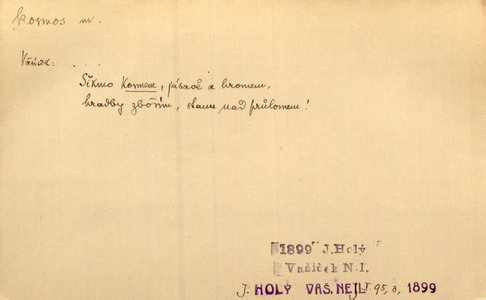 kosmos m.
Vášeň: . . .
Šikmo Kosmem, jásavě a hromem,
hradby zbořím, stanu nad průlomem!
1899 J. Holý
Vašíček N. I.
J. HOLÝ VAŠ. NEJL. J. 95, 3, 1899